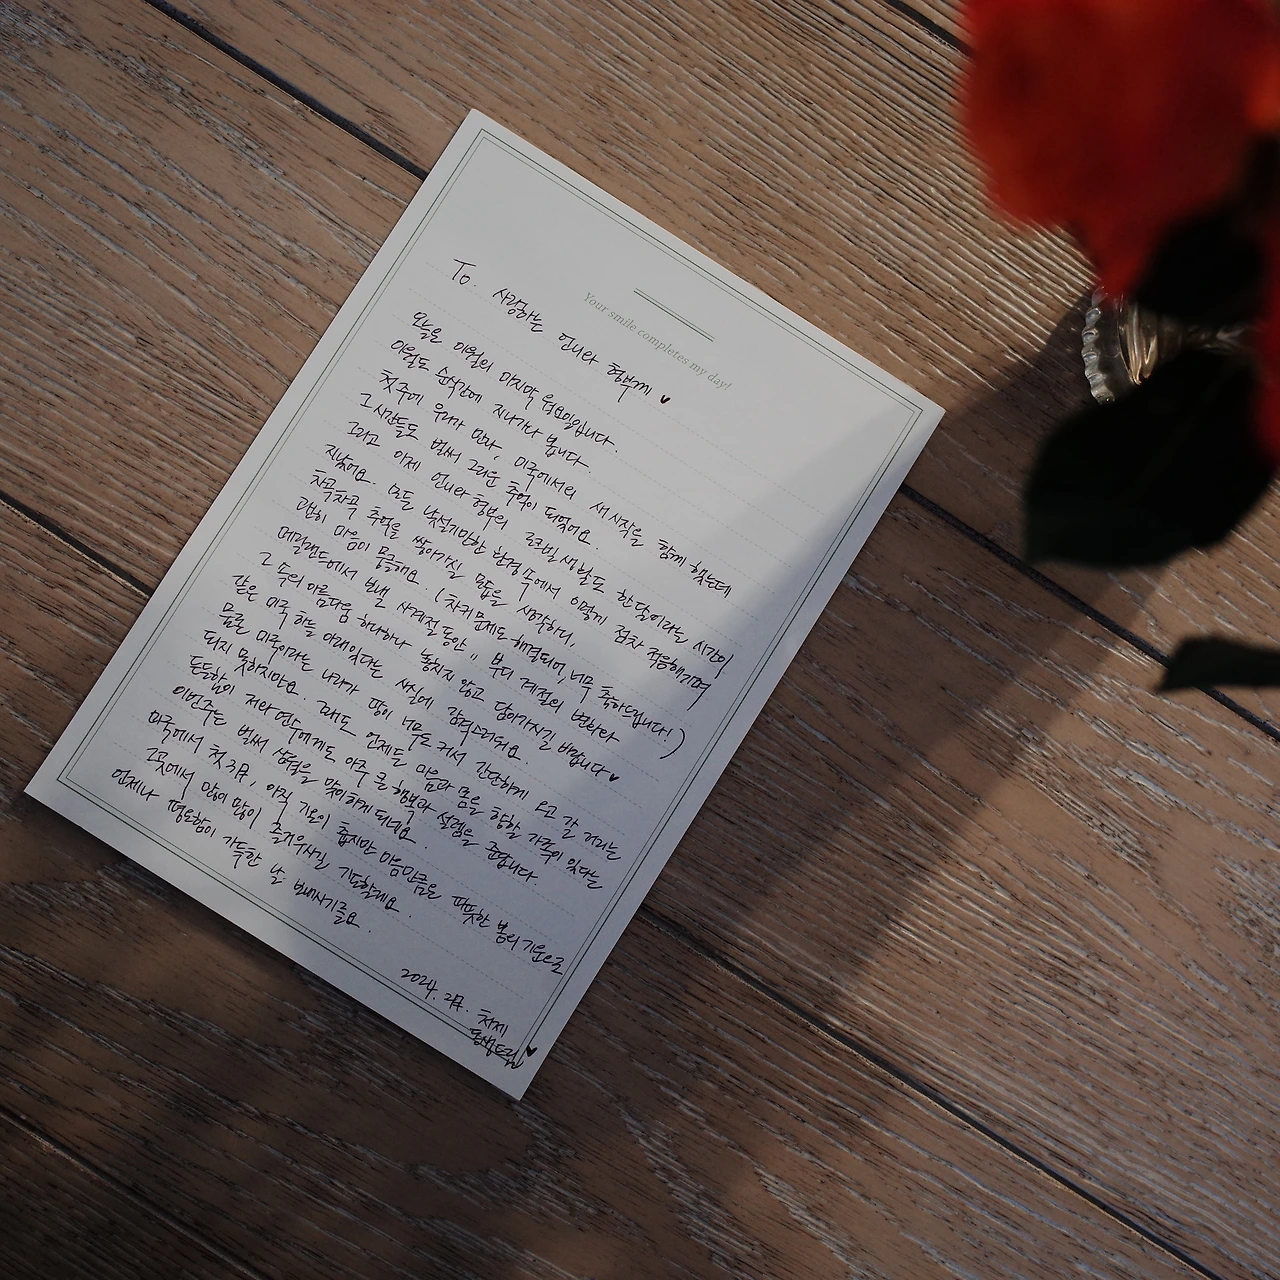 Your smile completes my day!
To. 사랑하는 언니와 형부께 ♥
오늘은 이월의 마지막 월요일입니다.
이월도 순식간에 지나가나 봅니다.
첫 주에 우리가 만나, 미국에서의 새 시작을 함께 했는데
그 시간들도 벌써 그리운 추억이 되었어요.
그리고 이제 언니와 형부의 락빌 생활도 한 달이라는 시간이
지났어요. 모든 낯설기만한 환경 속에서 이렇게 점차 적응해가며
차곡차곡 추억을 쌓아가실 모습을 생각하니,
괜히 마음이 뭉클해요 (차키 문제도 해결되어, 너무 축하드립니다!)
메릴랜드에서 보낼 사계절 동안 부디 계절의 변화와
그 속의 아름다움 하나하나 놓치지 않고 담아가시길 바랍니다 ♥
같은 미국 하늘 아래있다는 사실에 감격스러워요
물론 미국이라는 나라가 땅이 너무도 커서 간단하게 오고 갈 거리는
되지 못하지만요. 그래도 언제든 마음과 몸을 향할 가족이 있다는
든든함이 저와 연수에게도 아주 큰 행복과 설렘을 준답니다.
이번주는 벌써 삼월을 맞이하게 되네요.
미국에서 첫 3月, 아직 기온이 춥지만 마음만큼은 따뜻한 봄의 기운으로
그곳에서 많이 많이 즐거우시길 기도할게요.
언제나 평온함이 가득한 날 보내시기를요.
2024. 2月. 처제
동생드림 ♥